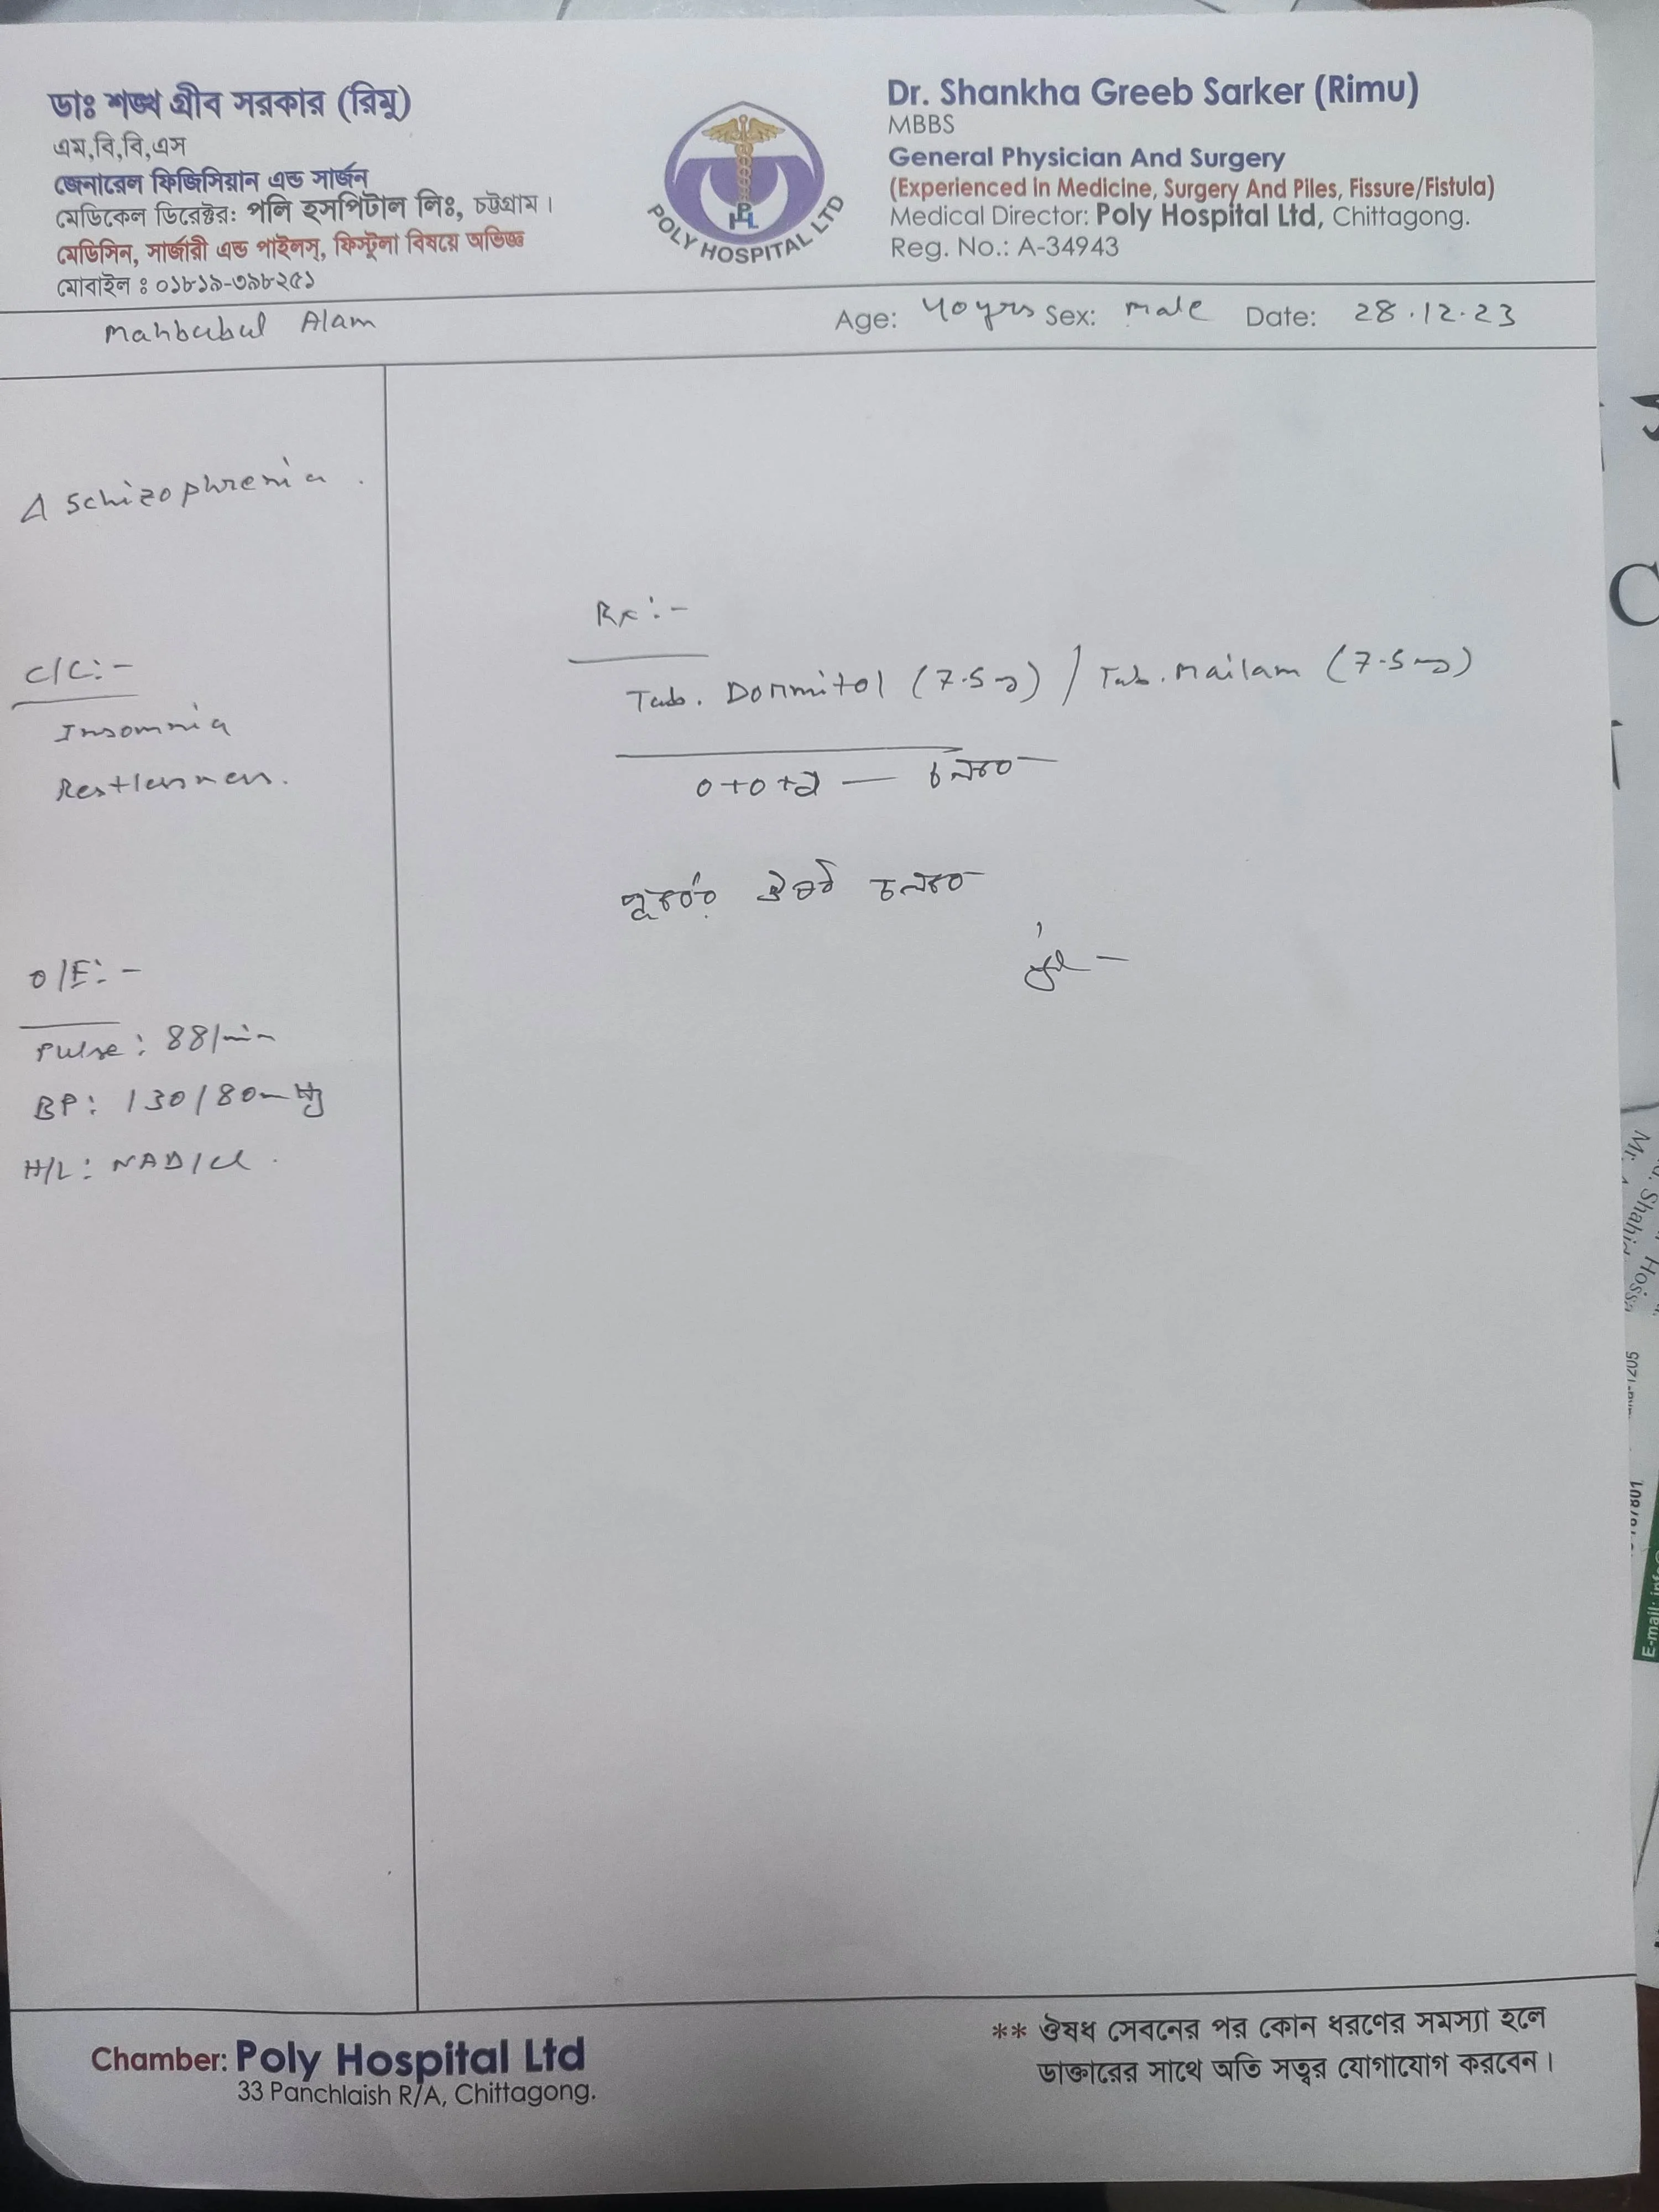 ডাঃ শঙ্খ গ্রীব সরকার (রিমু)
এম,বি,বি,এস
জেনারেল ফিজিসিয়ান এন্ড সার্জন
মেডিকেল ডিরেক্টর: পলি হসপিটাল লিঃ, চট্টগ্রাম।
মেডিসিন, সার্জারী এন্ড পাইলস্, ফিস্টুলা বিষয়ে অভিজ্ঞ
মোবাইল ঃ ০১৮১৯-৩৯৮২৫১
POLY HOSPITAL LTD
Dr. Shankha Greeb Sarker (Rimu)
MBBS
General Physician And Surgery
(Experienced in Medicine, Surgery And Piles, Fissure/Fistula)
Medical Director: Poly Hospital Ltd, Chittagong.
Reg. No.: A-34943
Mahbubul Alam Age: 40 yrs Sex: male Date: 28.12.23
Δ Schizophrenia.
C/C:-
Insomnia
Restlessness.
O/E:-
Pulse: 88/min
BP: 130/80 mmHg
H/L: NAD/Cl.
Rx:-
Tab. Dormitol (7.5 mg) / Tab. Mailam (7.5 mg)
0+0+২ — চলবে
পূর্বের ঔষধ চলবে
** ঔষধ সেবনের পর কোন ধরণের সমস্যা হলে
ডাক্তারের সাথে অতি সত্বর যোগাযোগ করবেন।
Chamber: Poly Hospital Ltd
33 Panchlaish R/A, Chittagong.